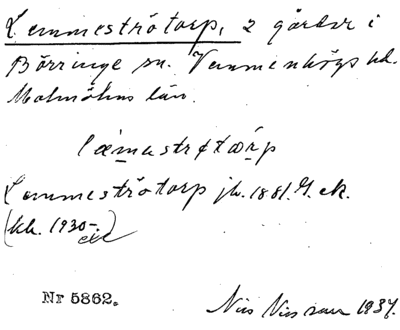 Lemmeströtorp, 2 gårdar i
Börringe sn. Vemmenhögs hd.
Malmöhus län.
Lemmeströtorp jb. 1881. G. ek.
(kk. 1930-.
Nr 5862.
Nils Nilsson 1937.